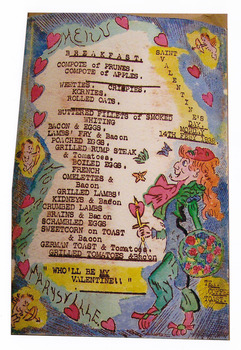 MENU
SAINT
VALENTIN
E'S
BREAKFAST.
COMPOTE OF PRUNES.
COMPOTE OF APPLES.
WESTIES. CRIMPIES.
KORNIES.
ROLLED OATS.
14TH FEB.
BUTTERED FILLETS OF SMOKED
WHITING
BACON & EGGS.
LAMBS' FRY & Bacon
POACHED EGGS.
GRILLED RUMP STEAK
& Tomatoes.
BOILED EGGS.
FRENCH
OMELETTES &
Bacon
GRILLED LAMBS'
KIDNEYS & Bacon
CRUMBED LAMBS
BRAINS & Bacon
SCRAMBLED EGGS
SWEETCORN on TOAST
& Bacon.
GERMAN TOAST & Tomatoe.
GRILLED TOMATOES & Bacon
"WHO'LL BE MY
VALENTINE!! "
MARYSVILLE